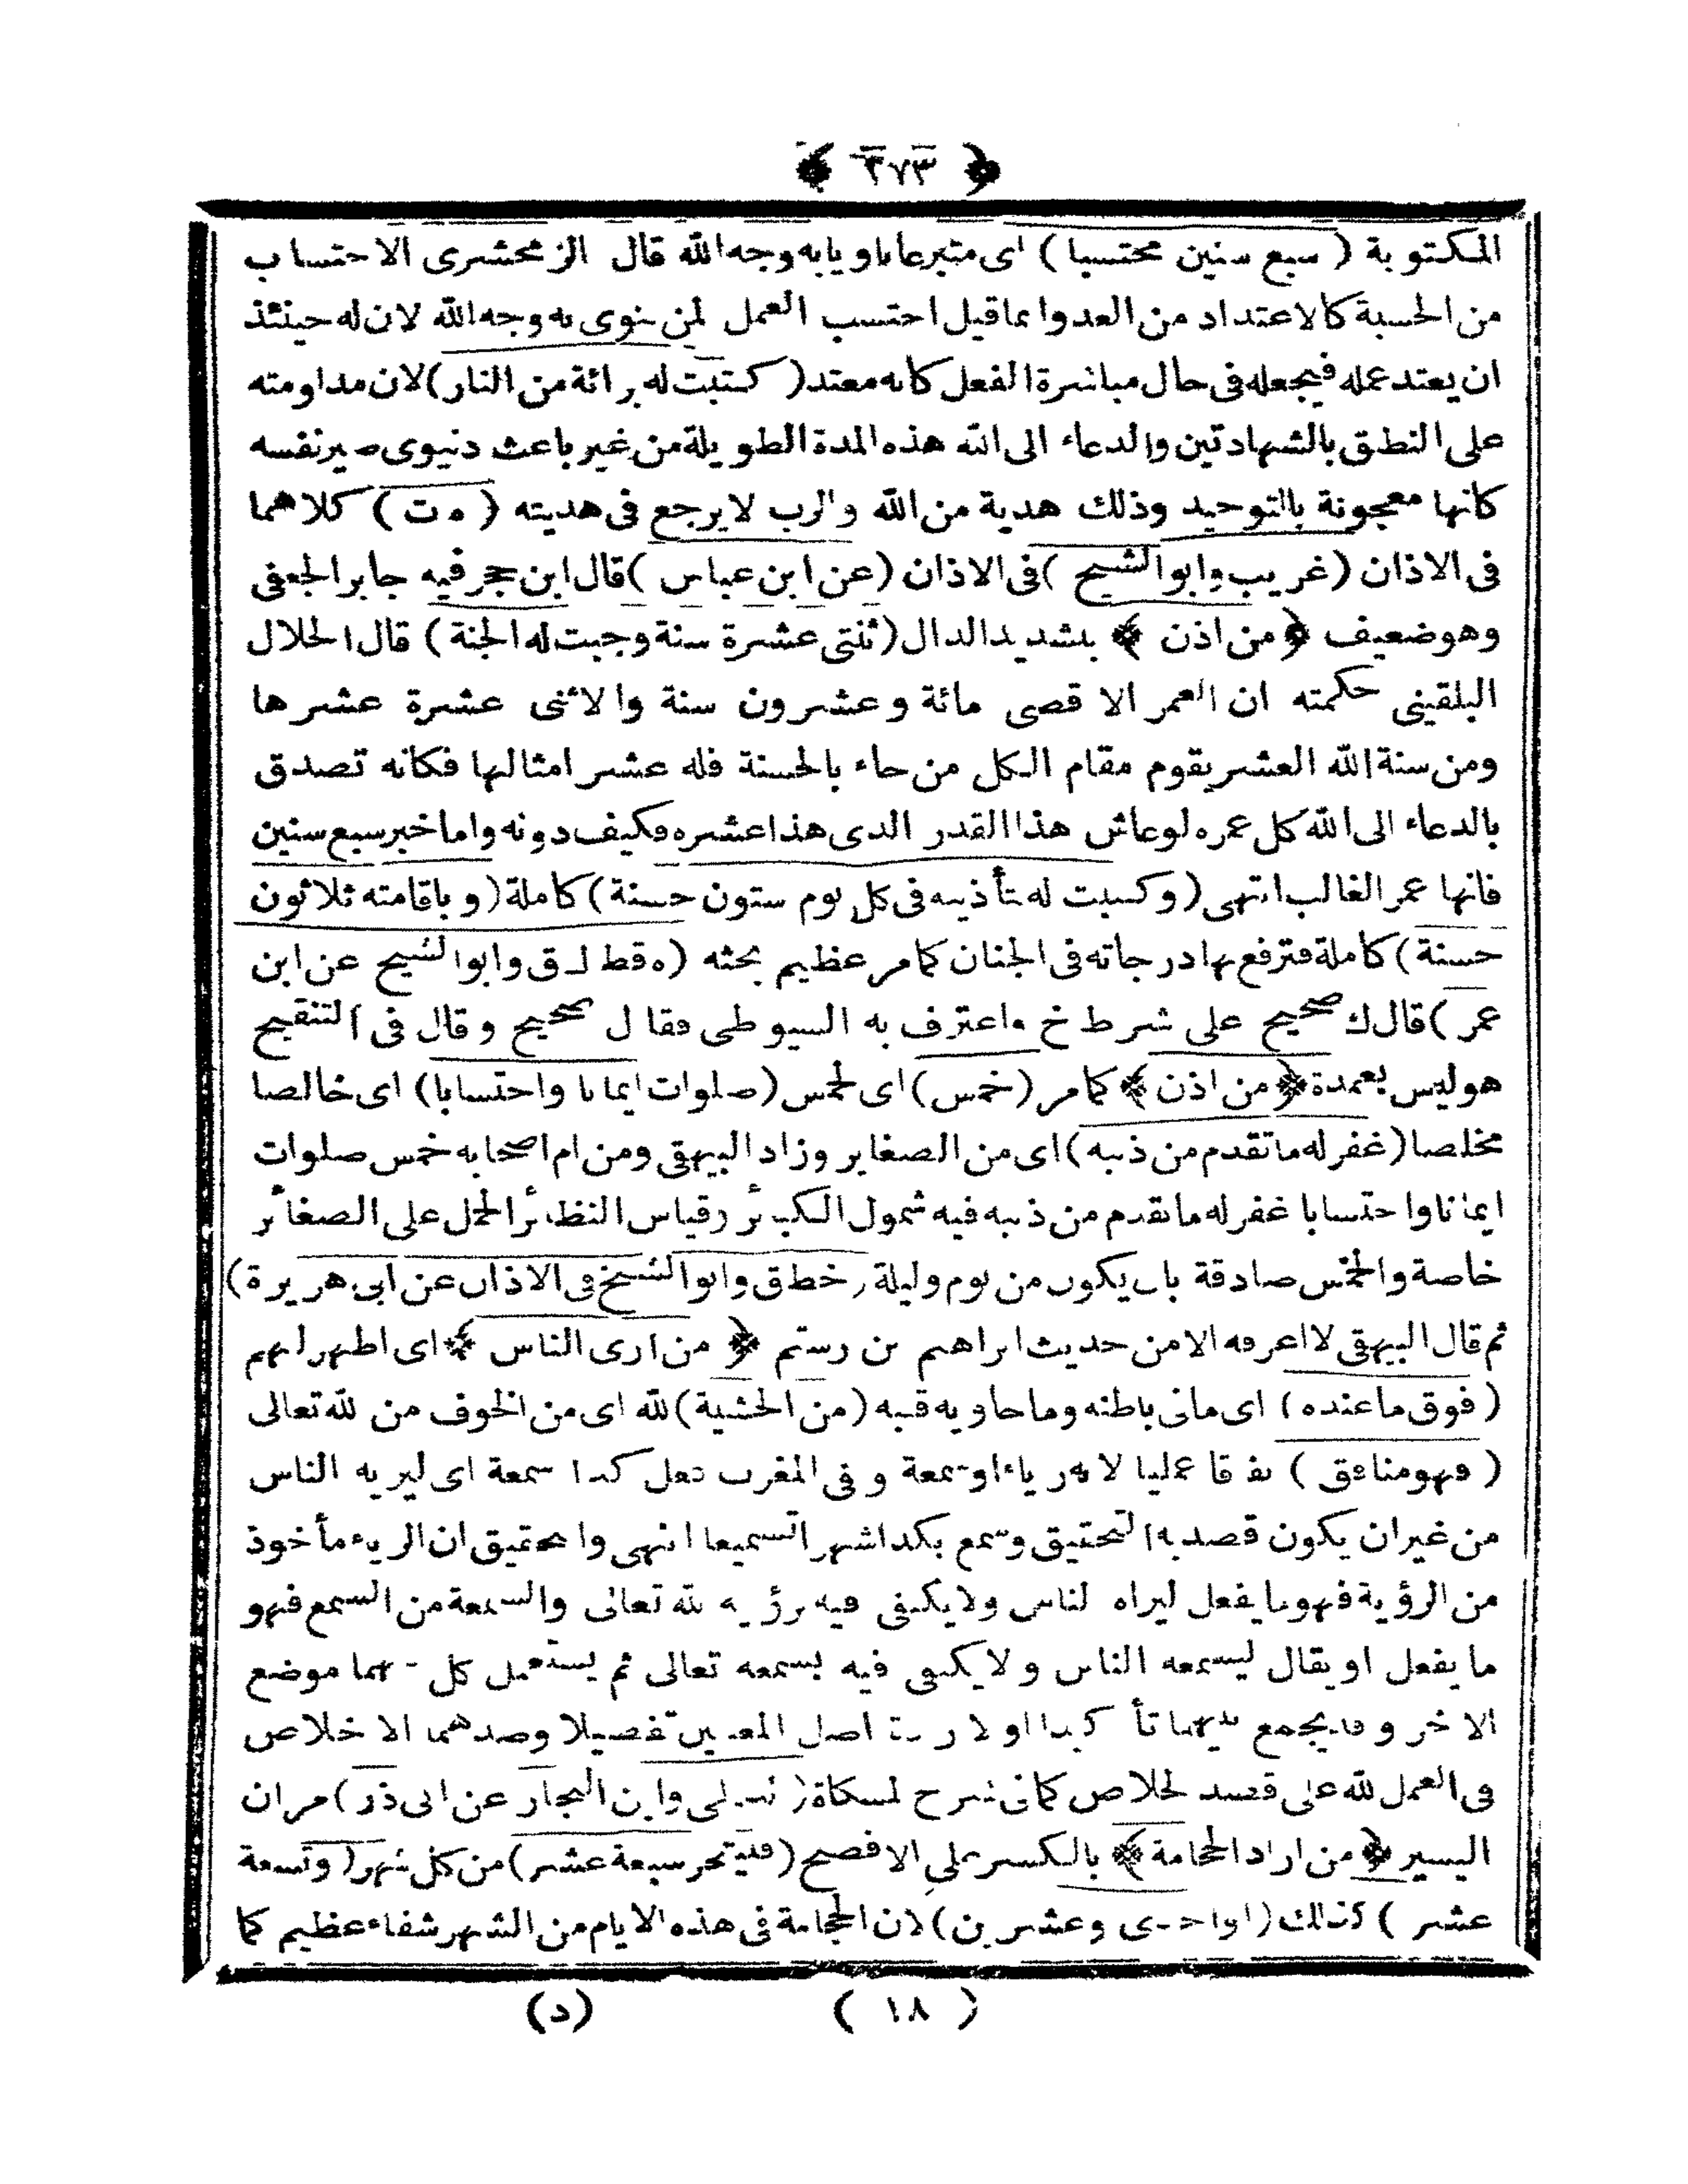 ﴿ ٢٧٣ ﴾
المكتوبة ( سبع سنين محتسبا ) اى متبرعا ناويا به وجه الله قال الزمخشرى الاحتساب
من الحسبة كالاعتداد من العد وانما قيل احتسب العمل لمن ينوى به وجه الله لان له حينئذ
ان يعتد عمله فيجعله فى حال مباشرة الفعل كانه معتد ( كتبت له برائة من النار ) لان مداومته
على النطق بالشهادتين والدعاء الى الله هذه المدة الطويلة من غير باعث دنيوى صير نفسه
كانها معجونة بالتوحيد وذلك هدية من الله والرب لا يرجع فى هديته ( ه ت ) كلاهما
فى الاذان ( غريب وابو الشيخ ) فى الاذان ( عن ابن عباس ) قال ابن حجر فيه جابر الجعفى
وهو ضعيف ﴿ من اذن ﴾ بتشديد الدال ( ثنتى عشرة سنة وجبت له الجنة ) قال الجلال
البلقينى حكمته ان العمر الاقصى مائة وعشرون سنة والاثنى عشرة عشرها
ومن سنة الله العشر يقوم مقام الكل من جاء بالحسنة فله عشر امثالها فكانه تصدق
بالدعاء الى الله كل عمره لو عاش هذا القدر الذى هذا عشره فكيف دونه واما خبر سبع سنين
فانها عمر الغالب انتهى ( وكتبت له بتأذينه فى كل يوم ستون حسنة ) كاملة ( وباقامته ثلاثون
حسنة ) كاملة فترفع بها درجاته فى الجنان كما مر عظيم بحثه ( ه قط ك ق وابو الشيخ عن ابن
عمر ) قال ك صحيح على شرط خ واعترف به السيوطى فقال صحيح وقال فى التنقيح
هو ليس بعمدة ﴿ من اذن ﴾ كما مر ( خمس ) اى لخمس ( صلوات ايمانا واحتسابا ) اى خالصا
مخلصا ( غفر له ما تقدم من ذنبه ) اى من الصغاير وزاد البيهقى ومن ام اصحابه خمس صلوات
ايمانا واحتسابا غفر له ما تقدم من ذنبه فيه شمول الكبائر وقياس النظائر الحمل على الصغائر
خاصة والخمس صادقة بان يكون من يوم وليلة ( خط ق وابو الشيخ فى الاذان عن ابى هريرة )
ثم قال البيهقى لا اعرفه الا من حديث ابراهيم بن رستم ﴿ من ارى الناس ﴾ اى اظهر لهم
( فوق ما عنده ) اى مافى باطنه وما حاويه قلبه ( من الخشية ) لله اى من الخوف من الله تعالى
( فهو منافق ) نفاقا عمليا لانه رياء او سمعة وفى المغرب فعل كذا سمعة اى ليريه الناس
من غير ان يكون قصد به التحقيق وسمع بكذا شهر تسميعا انتهى والتحقيق ان الرياء مأخوذ
من الرؤية فهو ما يفعل ليراه الناس ولا يكتفى فيه برؤية الله تعالى والسمعة من السمع فهو
ما يفعل او يقال ليسمعه الناس ولا يكتفى فيه بسمعه تعالى ثم يستعمل كل منهما موضع
الاخر وقد يجمع بينهما تأكيدا او لارادة اصل المعنيين تفصيلا وضدهما الاخلاص
فى العمل لله على قصد الخلاص كما فى شرح المشكاة ( وابن النجار عن ابى ذر ) مر ان
اليسير ﴿ من اراد الحجامة ﴾ بالكسر على الافصح ( فليتحر سبعة عشر ) من كل شهر ( وتسعة
عشر ) كذلك ( او احدى وعشرين ) لان الحجامة فى هذه الايام من الشهر شفاء عظيم كما
( ١٨ ) (د)